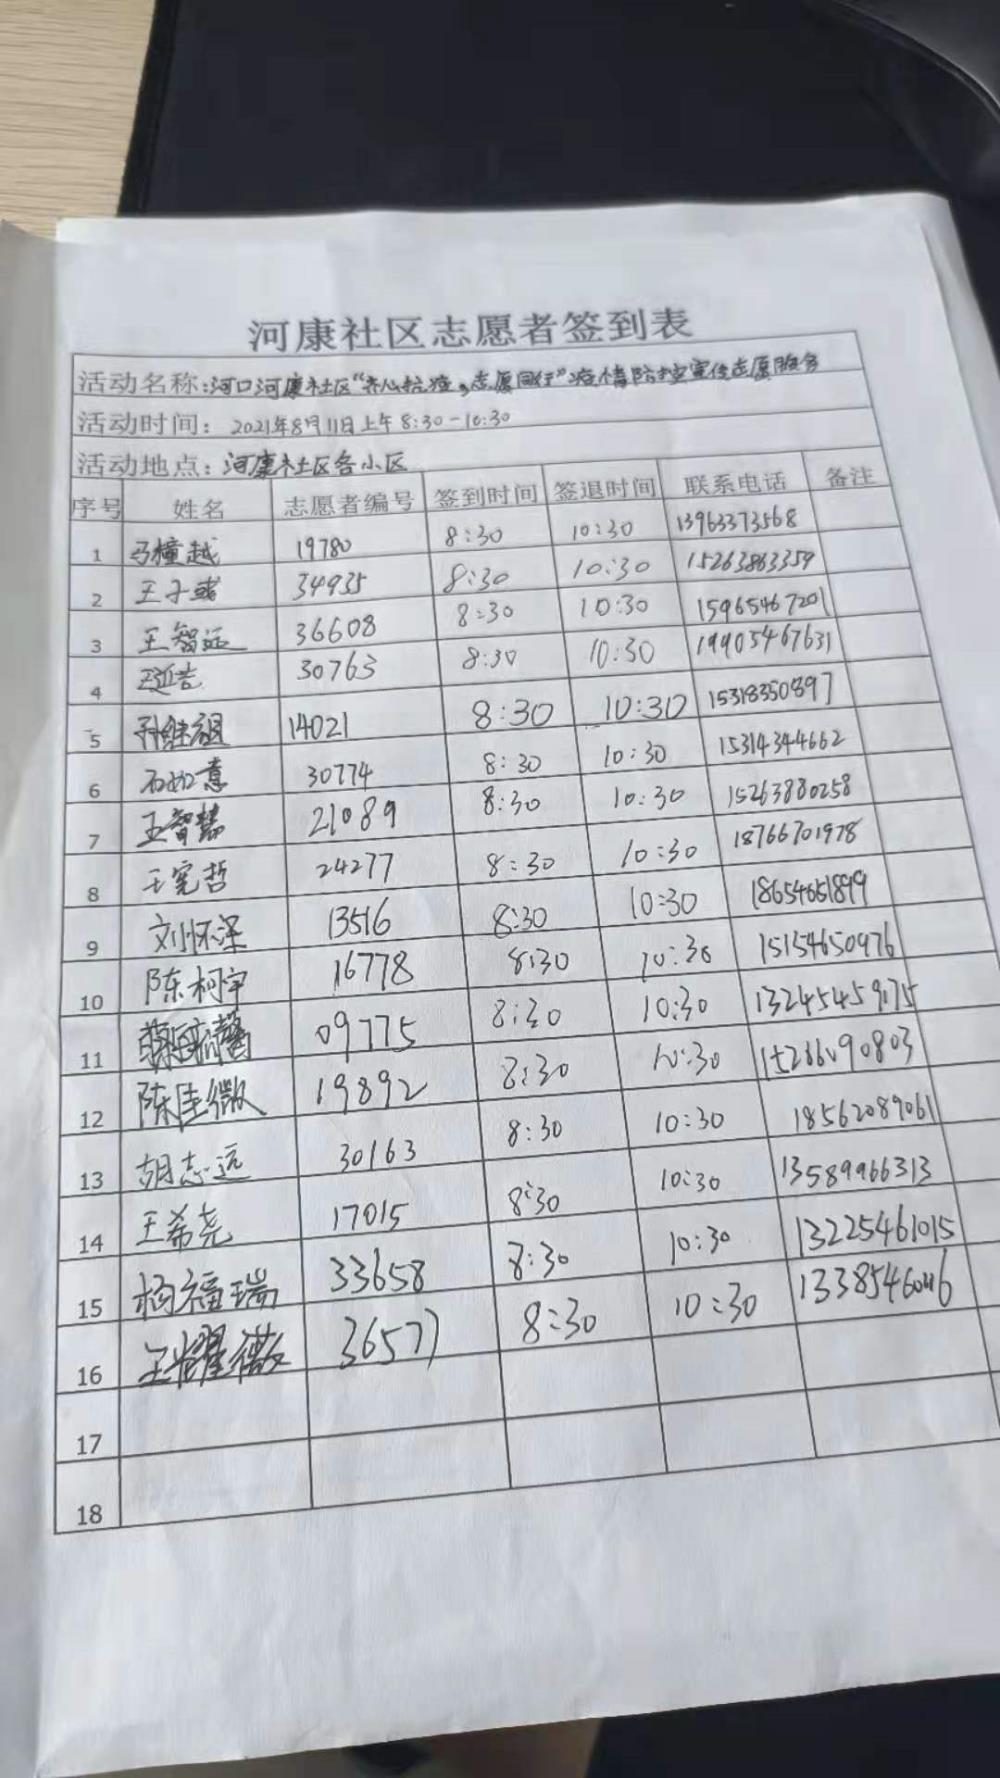 河康社区志愿者签到表
活动名称:河口河康社区“齐心抗疫,志愿同行”疫情防控宣传志愿服务
活动时间: 2021年8月11日上午8:30-10:30
活动地点:河康社区各小区
序号 姓名 志愿者编号 签到时间 签退时间 联系电话 备注
1 马橦越 19780 8:30 10:30 13963373568
2 王子彧 34935 8:30 10:30 15263863359
3 王智远 36608 8:30 10:30 15965467201
4 30763 8:30 10:30 19905467631
5 孙继祖 14021 8:30 10:30 15318350897
6 石如意 30774 8:30 10:30 15314344662
7 王智慧 21089 8:30 10:30 15263880258
8 王宪哲 24277 8:30 10:30 18766701978
9 刘怀泽 13516 8:30 10:30 18654651899
10 陈柯宇 16778 8:30 10:30 15154650976
11 09775 8:30 10:30 13245459175
12 陈佳微 19892 8:30 10:30 15266090803
13 胡志远 30163 8:30 10:30 18562089061
14 王希尧 17015 8:30 10:30 13589966313
15 杨福瑞 33658 8:30 10:30 13225461015
16 王耀微 36577 8:30 10:30
17
18